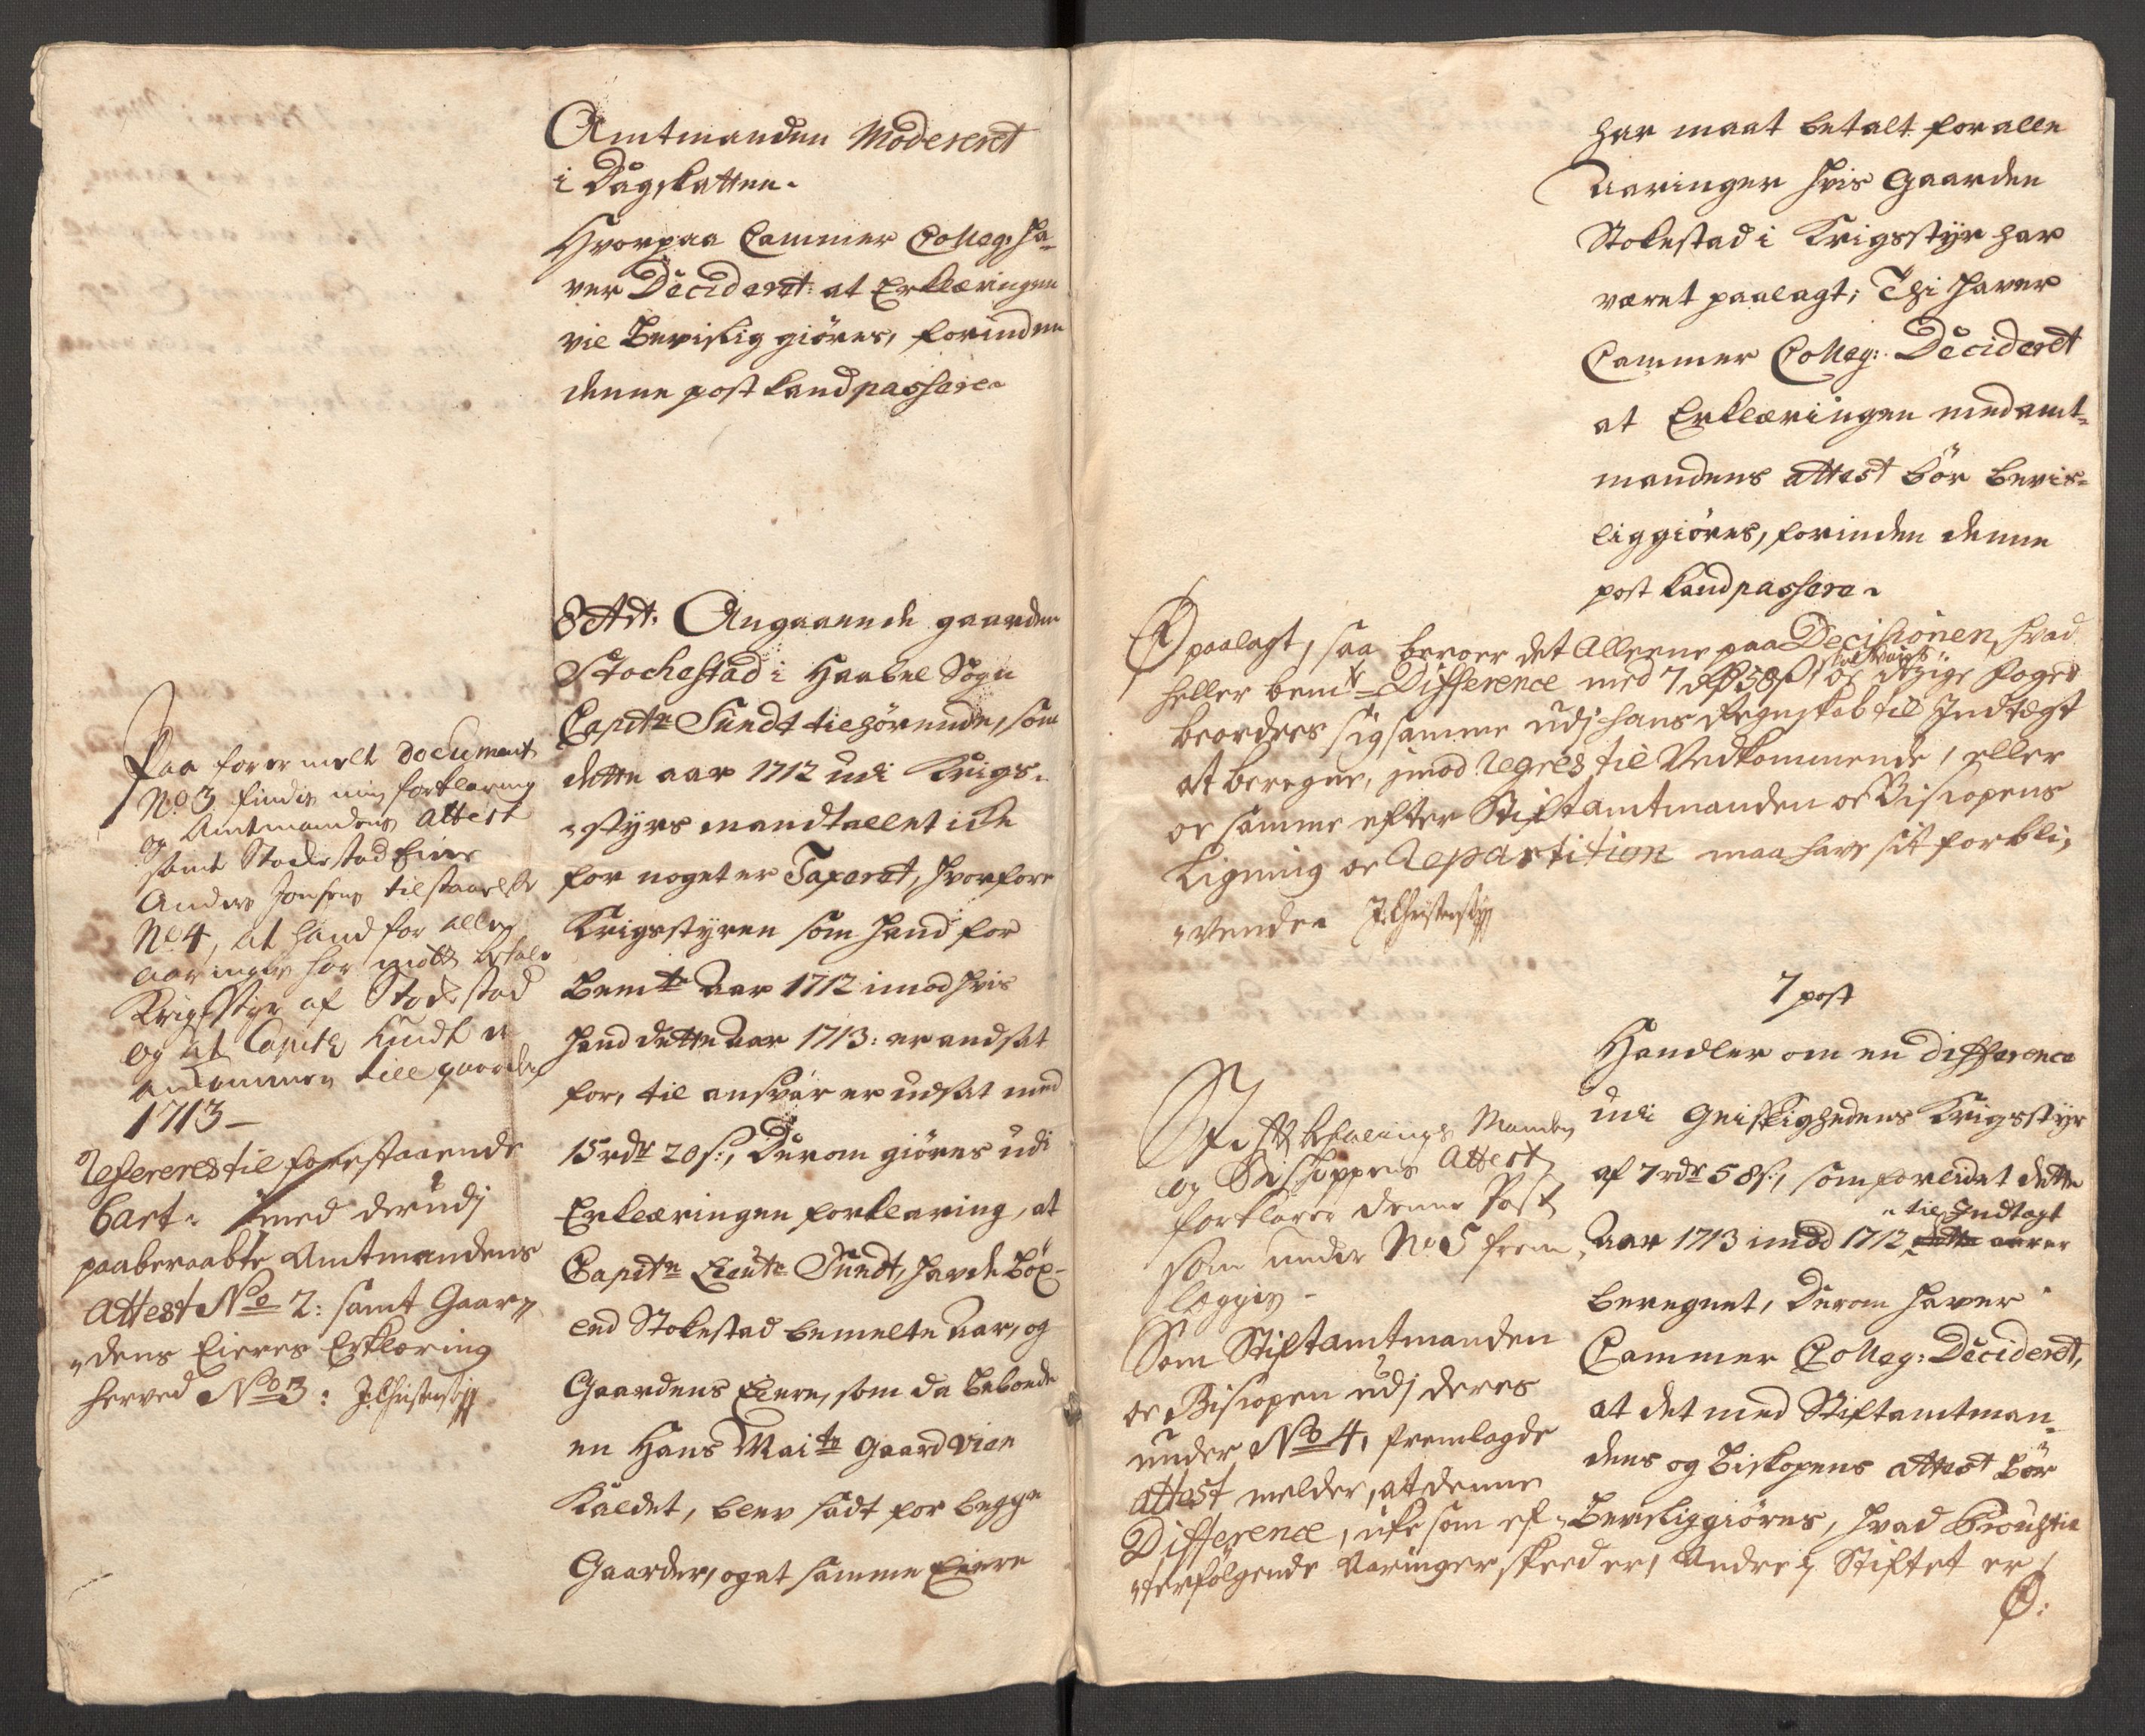 Amtmanden Modereret
i Dagskatten.
Hvorpaa Cammer Colleg: ha-
ver Decideret: at Erklæringen
vil Bevislig giöres, forinden
denne post kand passere
8 Art: Angaaende gaarden
Stochestad i Haabel Sogn
Capitn Sundt tilhörende, som
dette aar 1712 udi Krigs-
styrs mandtallet icke
for noget er Taxeret, hvorfore
Krigsstyren som hand for
Bemte Aar 1712 imod hvis
hand dette Aar 1713: er andsat
for, til ansvar er udsat med
15 rdr 20 s:, Derom giöres udi
Erklæringen forklaring, at
Capitn Lieutn Sundt, havde
end Stokestad bemelte Aar, og
Gaardens Eiere, som da beboede
en Hans Maits Gaard Vien
Kaldet, blev sadt for begge
Gaarder, og at samme Eiere
Paa forermelte document
No 3 findis min forklaring
og Amtmandens Attest
samt Stockestad Eiers
Anders Jonsens tilstaaelse
No 4, at hand for alle
aaringer har mott betale
Krigsstyr af Stockestad
og at Capitn Sundt er
ankommen till gaarden
1713 –
Refereres til forestaaende
6 art: med derudj
paaberaabte Amtmandens
Attest No 2: samt Gaar-
dens Eieres Erklæring
herved No 3: J. Christensön
har maat betalt for alle
Aaringer hvis Gaarden
Stokestad i Krigsstyr har
været paalagt; Thi haver
Cammer Colleg: Decideret
at Erklæringen med amt-
mandens attest bör bevis-
liggiöres, forinden denne
post kand passere
paalagt, saa beroer det Alleene paa Decisionen, hvad
heller bemte Difference med 7 rd 58 s skal svares: oc itzige foged
beordres sig samme udj hans Regnskab til Indtægt
at beregne, imod Regres til Vedkommende, eller
oc samme efter Stiftamtmanden oc Biscopens
Ligning oc Repartition maa have sit forbli-
vende J. Christensön
7 post
Handler om en difference
udi Geistlighedens Krigsstyr
af 7 rdr 58 s:, som forleidet dette
Aar 1713 imod 1712 dette aar er
til Indtægt
beregnet, Derom haver
Cammer Colleg: Decideret,
at det med Stiftamtman-
dens og Biskopens attest bör
Bevisliggiöres, hvad
Stift befalings Manden
og Bischoppens Attest
forklarer denne Post
som under No 5 frem-
læggis –
Som Stiftamtmanden
oc Biscopen udj deres
under No 4, fremlagde
attest melder, at denne
Difference, icke som ef-
terfölgende Aaringer skeed er, Andre i Stiftet er